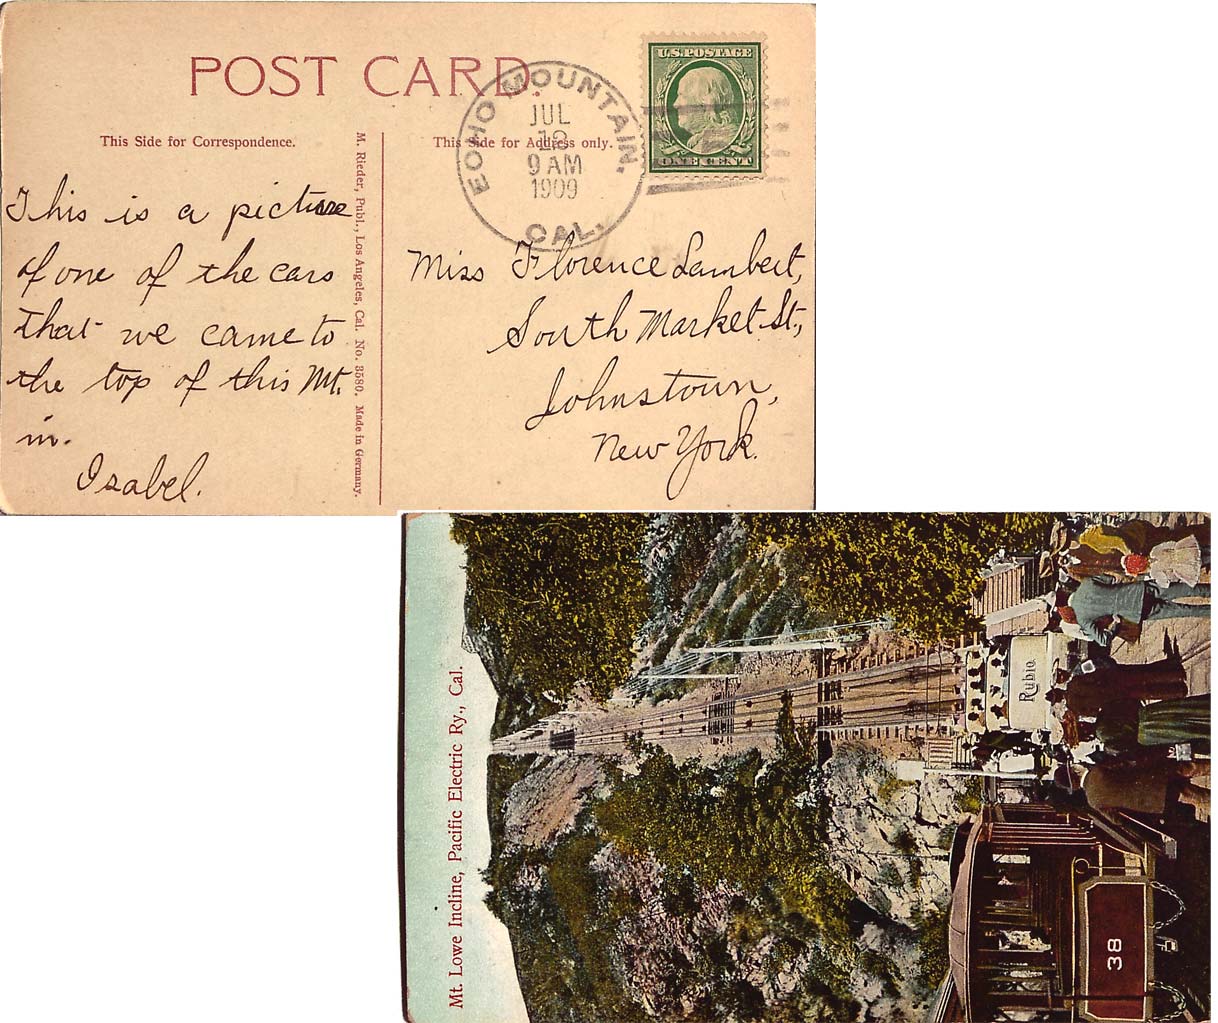 POST CARD.
This Side for Correspondence.
This is a picture
of one of the cars
that we came to
the top of this Mt.
in.
Isabel.
M. Rieder, Publ., Los Angeles, Cal. No. 3580. Made in Germany.
This Side for Address only.
ECHO MOUNTAIN.
JUL
9 AM
1909
CAL.
U.S. POSTAGE
ONE CENT
Miss Florence Lambert,
South Market St.,
Johnstown,
New York.
Mt. Lowe Incline, Pacific Electric Ry., Cal.
Rubio
38